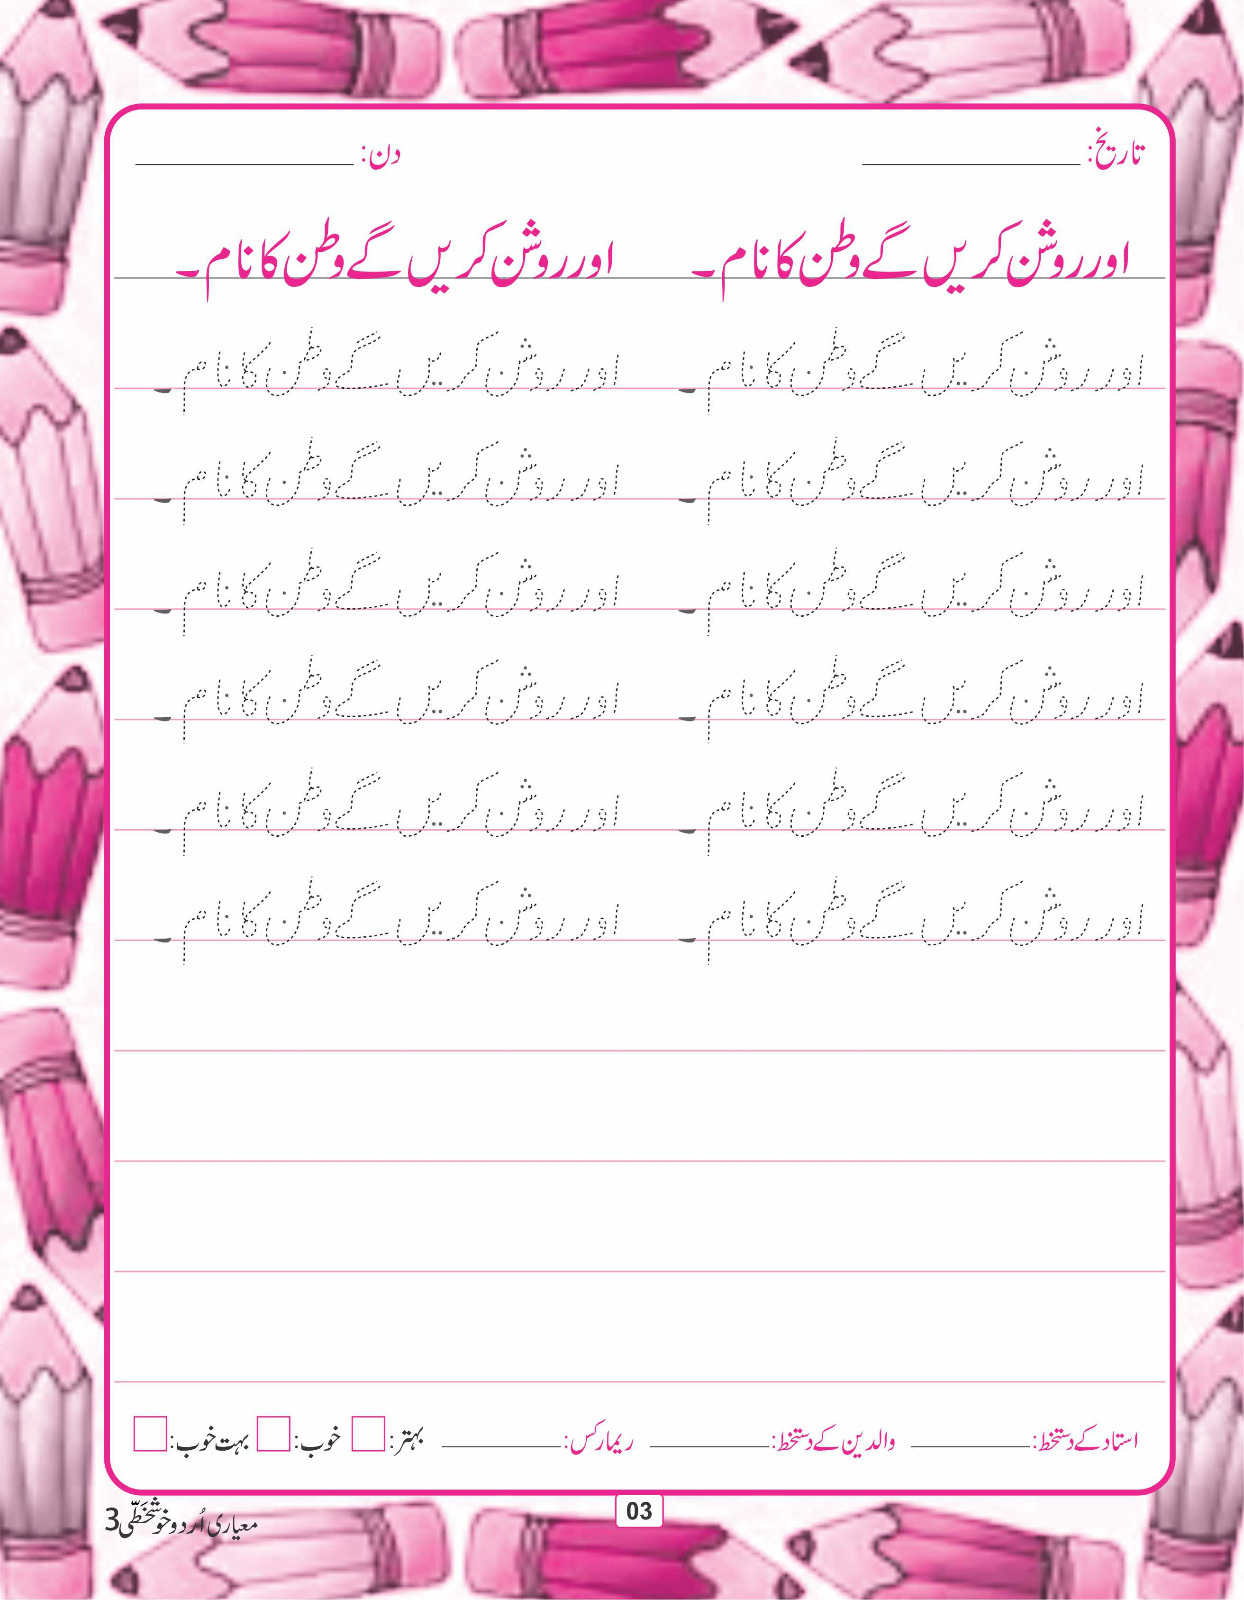 تاریخ: ____________ دن: ____________
اور روشن کریں گے وطن کا نام۔ اور روشن کریں گے وطن کا نام۔
اور روشن کریں گے وطن کا نام۔ اور روشن کریں گے وطن کا نام۔
اور روشن کریں گے وطن کا نام۔ اور روشن کریں گے وطن کا نام۔
اور روشن کریں گے وطن کا نام۔ اور روشن کریں گے وطن کا نام۔
اور روشن کریں گے وطن کا نام۔ اور روشن کریں گے وطن کا نام۔
اور روشن کریں گے وطن کا نام۔ اور روشن کریں گے وطن کا نام۔
اور روشن کریں گے وطن کا نام۔ اور روشن کریں گے وطن کا نام۔
استاد کے دستخط: ________ والدین کے دستخط: ________ ریمارکس: ________ بہتر: خوب: بہت خوب:
03
معیاری اُردو خوشخطّی 3